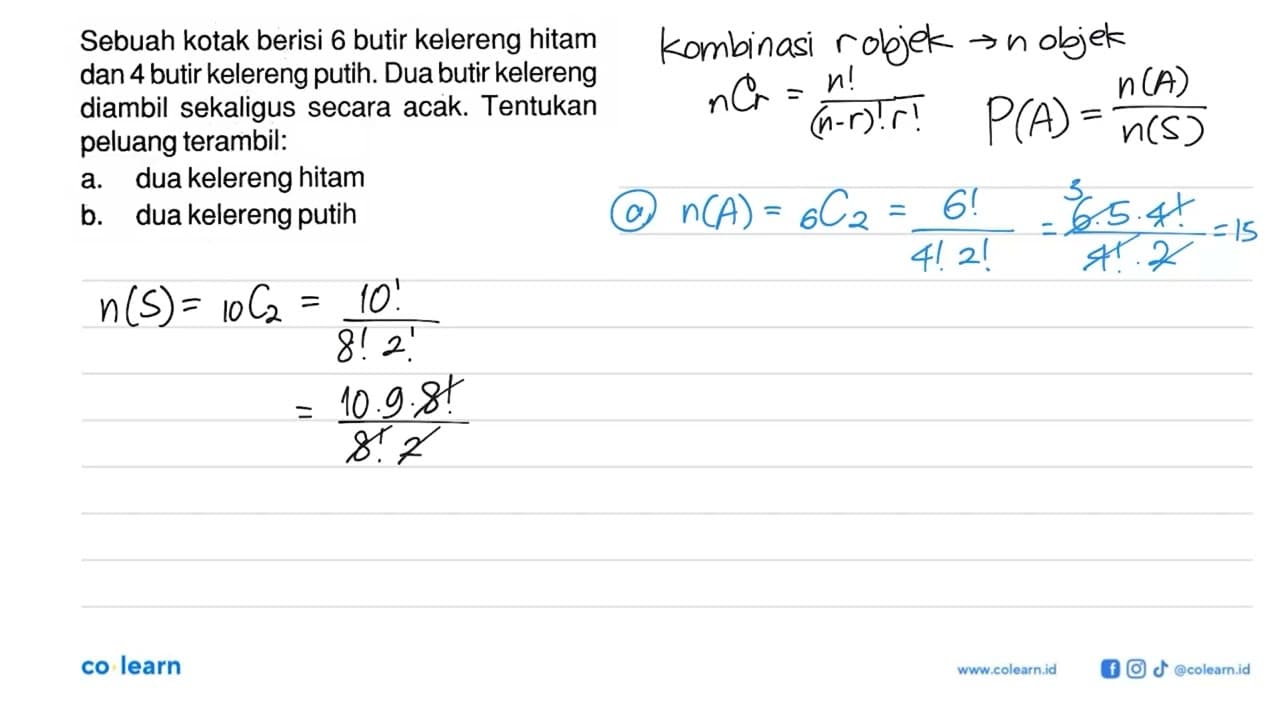 Sebuah kotak berisi 6 butir kelereng hitam
dan 4 butir kelereng putih. Dua butir kelereng
diambil sekaligus secara acak. Tentukan
peluang terambil:
a. dua kelereng hitam
b. dua kelereng putih
Kombinasi r objek → n objek
nCr = n! / (n-r)! r!
P(A) = n(A) / n(S)
ⓐ n(A) = ₆C₂ = 6! / 4! 2! = 3 6.5.4! / 4!.2 = 15
n(S) = ₁₀C₂ = 10! / 8! 2!
= 10.9.8! / 8! 2
co learn
www.colearn.id
@colearn.id